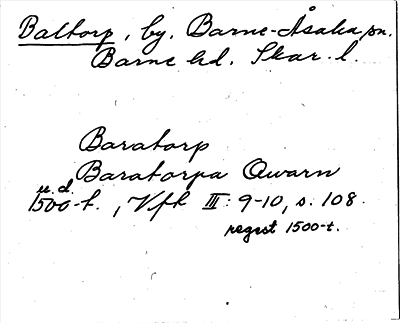 Baltorp, by. Barne-Åsaka sn.
Barne hd. Skar. l.
Baratorp
Baratorpa Qwarn
u.d.
1500-t., Vfk III: 9-10, s. 108.
regest 1500-t.